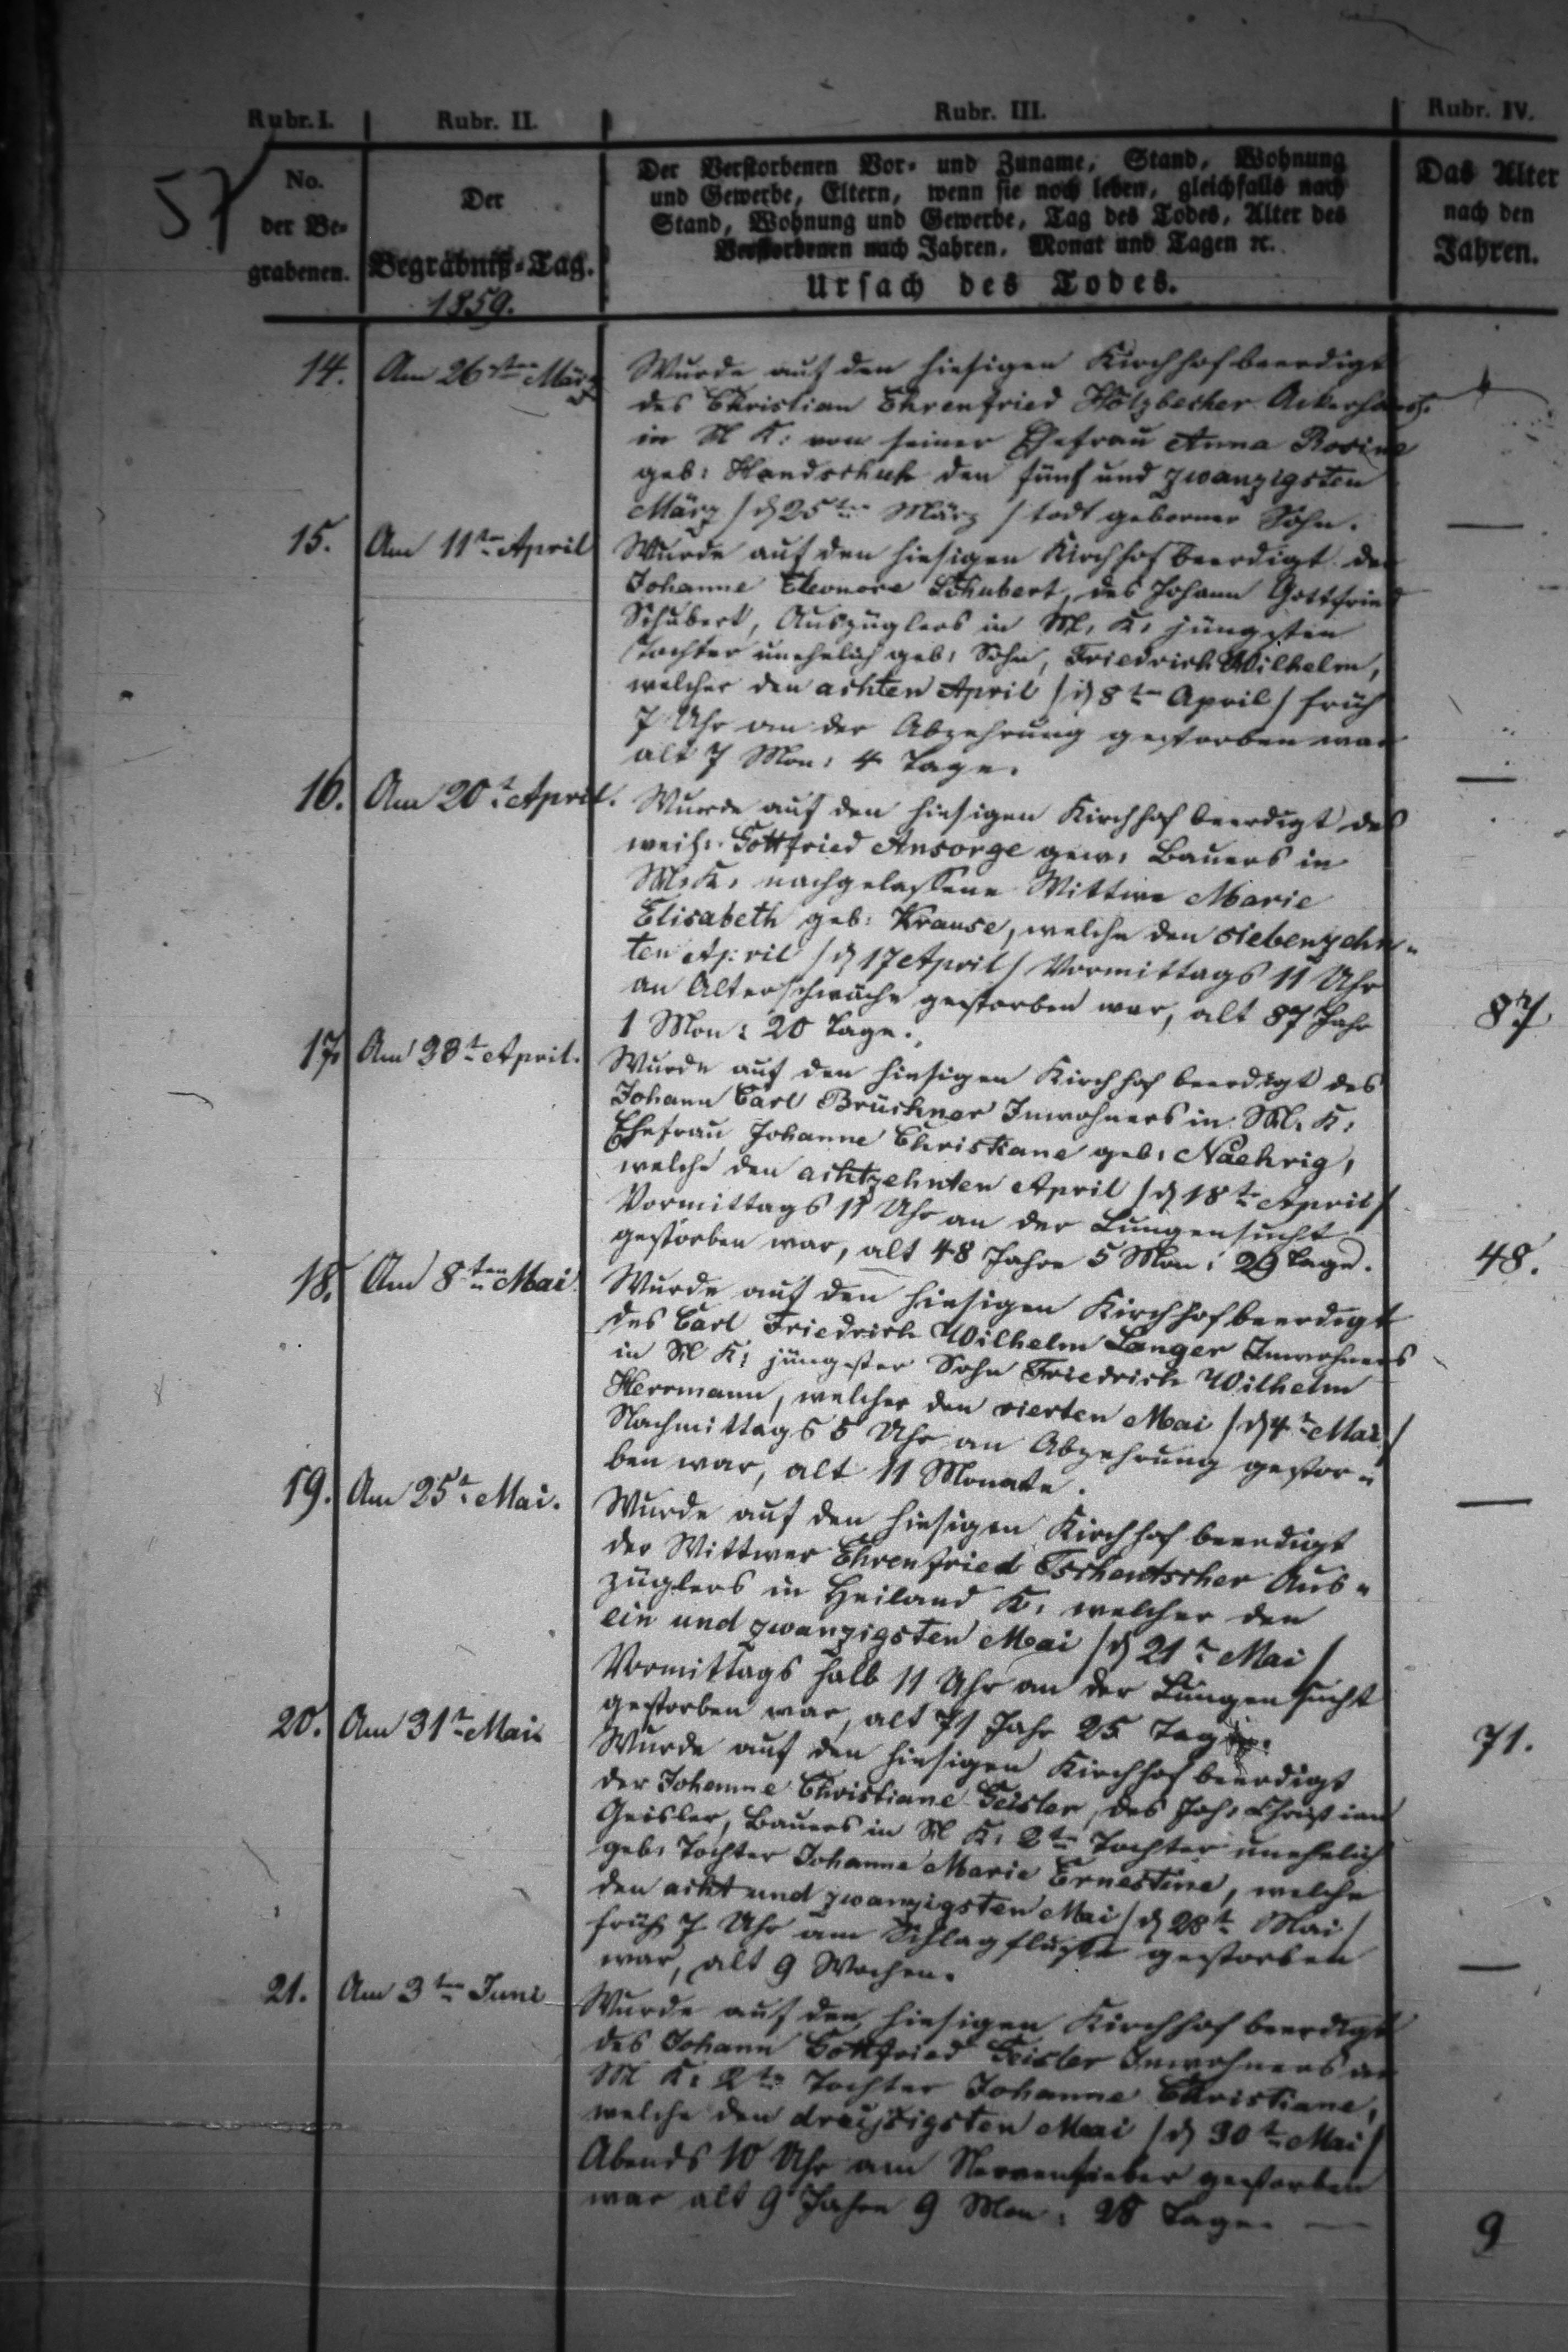 Rubr. I. Rubr. II. Rubr. III. Rubr. IV.
57
No.
der Be=
grabenen.
Der
Begräbniß=Tag.
1859.
Der Verstorbenen Vor= und Zuname, Stand, Wohnung
und Gewerbe, Eltern, wenn sie noch leben, gleichfalls nach
Stand, Wohnung und Gewerbe, Tag des Todes, Alter des
Verstorbenen nach Jahren, Monat und Tagen ꝛc.
Ursach des Todes.
Das Alter
nach den
Jahren.
14. Am 26sten März Wurde auf den hiesigen Kirchhof beerdigt
des Christian Ehrenfried Holzbecher
in M K: von seiner Ehefrau Anna Rosine
geb: Handschuh den fünf und zwanzigsten
März /d 25ten März/ todt geborner Sohn. —
15. Am 11ten April Wurde auf den hiesigen Kirchhof beerdigt der
Johanne Eleonore Schubert, des Johann Gottfried
Schubert, Auszüglers in M. K. jüngsten
Tochter unehelich geb: Sohn, Friedrich Wilhelm,
welcher den achten April /d 8ten April/ früh
7 Uhr an der Abzehrung gestorben war
alt 7 Mon: 4 Tage. —
16. Am 20t April. Wurde auf den hiesigen Kirchhof beerdigt des
weil: Gottfried Ansorge gew: Bauers in
M. K. nachgelassene Wittwe Marie
Elisabeth geb: Krause, welche den siebenzehn=
ten April /d 17 April/ Vormittags 11 Uhr
an Altersschwäche gestorben war, alt 87 Jahr 87
1 Mon: 20 Tage.
17. Am April. Wurde auf den hiesigen Kirchhof beerdigt des
Johann Carl Brückner Inwohners in M. K.
Ehefrau Johanne Christiane geb: Naehrig,
welche den achtzehnten April /d 18te April/
Vormittags 11 Uhr an der Lungensucht
gestorben war, alt 48 Jahre 5 Mon: 29 Tage. 48.
18. Am 8ten Mai Wurde auf den hiesigen Kirchhof beerdigt
des Carl Friedrich Wilhelm Langer Inwohners
in M K: jüngster Sohn Friedrich Wilhelm
Herrmann, welcher den vierten Mai /d 4t Mai/
Nachmittags 5 Uhr an Abzehrung gestor=
ben war, alt 11 Monate. —
19. Am 25t Mai. Wurde auf den hiesigen Kirchhof beerdigt
der Wittwer Ehrenfried Tschentscher Aus=
züglers in Heiland K. welcher den
ein und zwanzigsten Mai /d 21t Mai/
Vormittags halb 11 Uhr an der Lungensucht
gestorben war, alt 71 Jahr 25 Tage. 71.
20. Am 31t Mai Wurde auf den hiesigen Kirchhof beerdigt
der Johanne Christiane Geisler, des Joh: Christian
Geisler, Bauers in M K: 2ten Tochter unehelich
geb: Tochter Johanne Marie Ernestine, welche
den acht und zwanzigsten Mai /d 28t Mai/
früh 7 Uhr am Schlagflusse gestorben
war, alt 9 Wochen. —
21. Am 3ten Juni Wurde auf den hiesigen Kirchhof beerdigt
des Johann Gottfried Geisler Inwohners in
M K: 2te Tochter Johanne Christiane,
welche den dreißigsten Mai /d 30t Mai/
Abends 10 Uhr am Nervenfieber gestorben
war alt 9 Jahre 9 Mon: 28 Tage. — 9